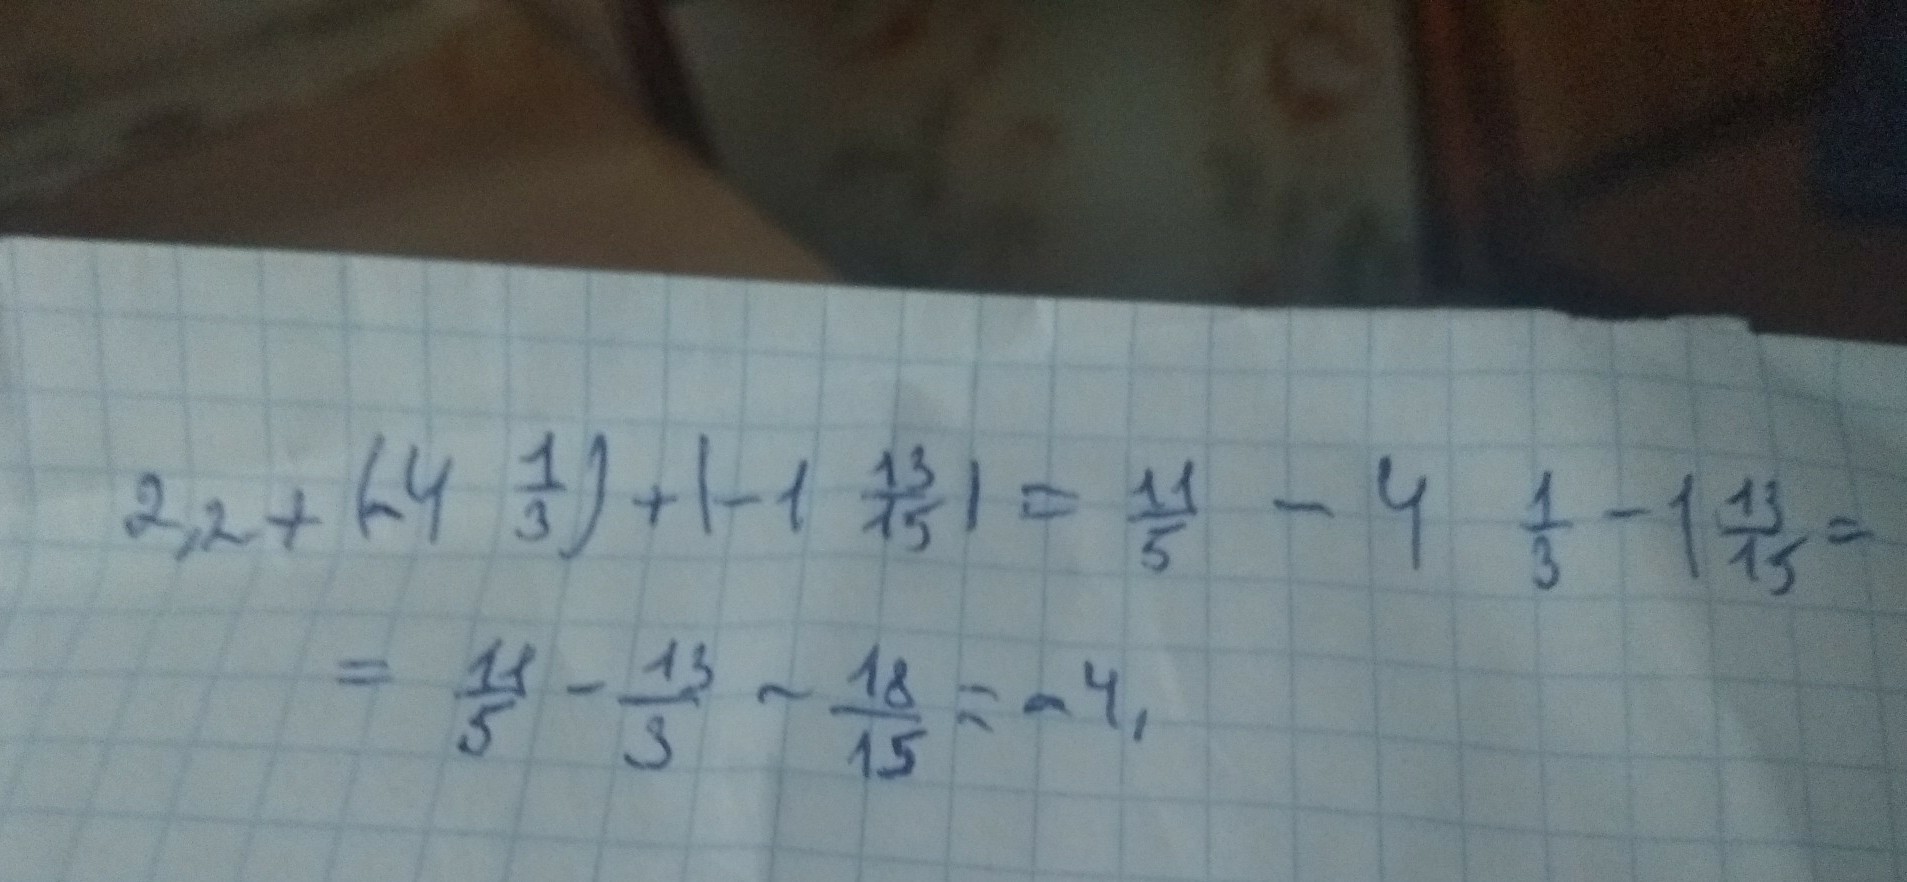 2,2 + (-4 1/3) + |-1 13/15| = 11/5 - 4 1/3 - 1 13/15 =
= 11/5 - 13/3 - 18/15 = -4,